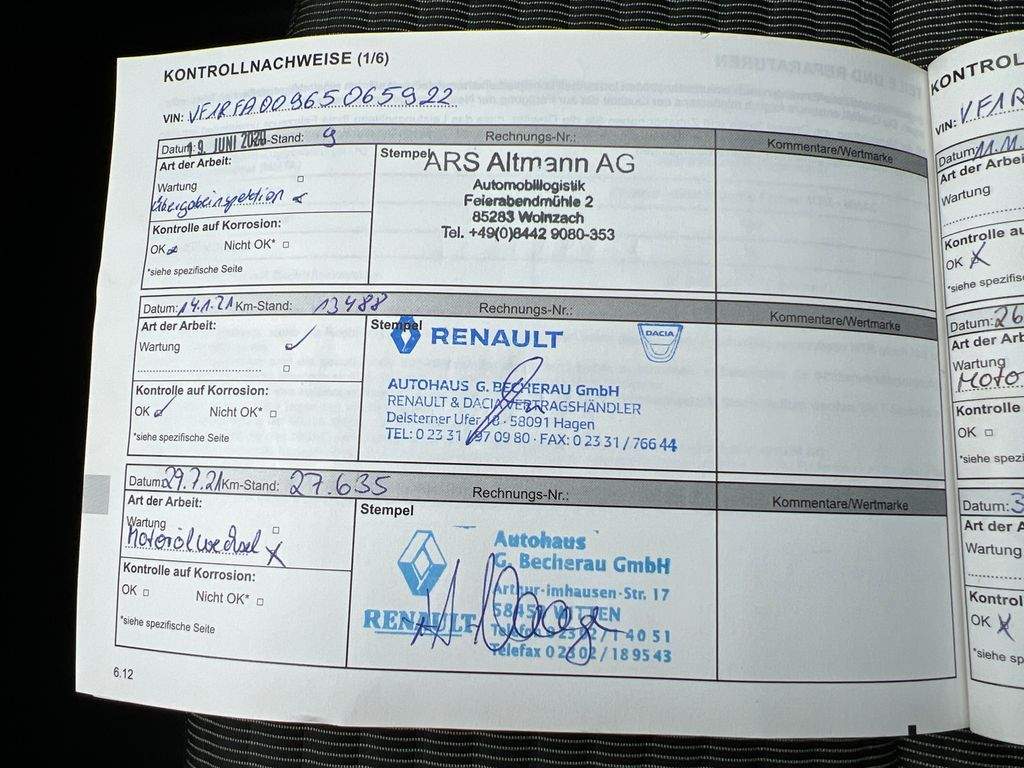 KONTROLLNACHWEISE (1/6)
VIN: VF1RFA00965065922
Datum: 19. JUNI 2020 Km-Stand: 9 Rechnungs-Nr.: Kommentare/Wertmarke
Art der Arbeit:
Wartung
Übergabeinspektion
Kontrolle auf Korrosion:
OK Nicht OK*
*siehe spezifische Seite
Stempel
ARS Altmann AG
Automobillogistik
Feierabendmühle 2
85283 Wolnzach
Tel. +49(0)8442 9080-353
Datum: 14.1.21 Km-Stand: 13488 Rechnungs-Nr.: Kommentare/Wertmarke
Art der Arbeit:
Wartung
Kontrolle auf Korrosion:
OK Nicht OK*
*siehe spezifische Seite
Stempel
RENAULT DACIA
AUTOHAUS G. BECHERAU GmbH
RENAULT & DACIA VERTRAGSHÄNDLER
Delsterner Ufer 18 · 58091 Hagen
TEL: 0 23 31 / 97 09 80 · FAX: 0 23 31 / 766 44
Datum: 29.7.21 Km-Stand: 27.635 Rechnungs-Nr.: Kommentare/Wertmarke
Art der Arbeit:
Wartung
Motorölwechsel X
Kontrolle auf Korrosion:
OK Nicht OK*
*siehe spezifische Seite
Stempel
RENAULT
Autohaus
G. Becherau GmbH
Arthur-Imhausen-Str. 17
58453 WITTEN
Telefon 0 23 02 / 1 40 51
Telefax 0 23 02 / 18 95 43
6.12
KONTROL
VIN: VF1R
Datum: 11.11.
Art der Arbei
Wartung
Kontrolle au
OK X
*siehe spezifis
Datum: 26
Art der Arb
Wartung
Moto
Kontrolle
OK
*siehe spez
Datum: 3
Art der A
Wartung
Kontrol
OK X
*siehe sp